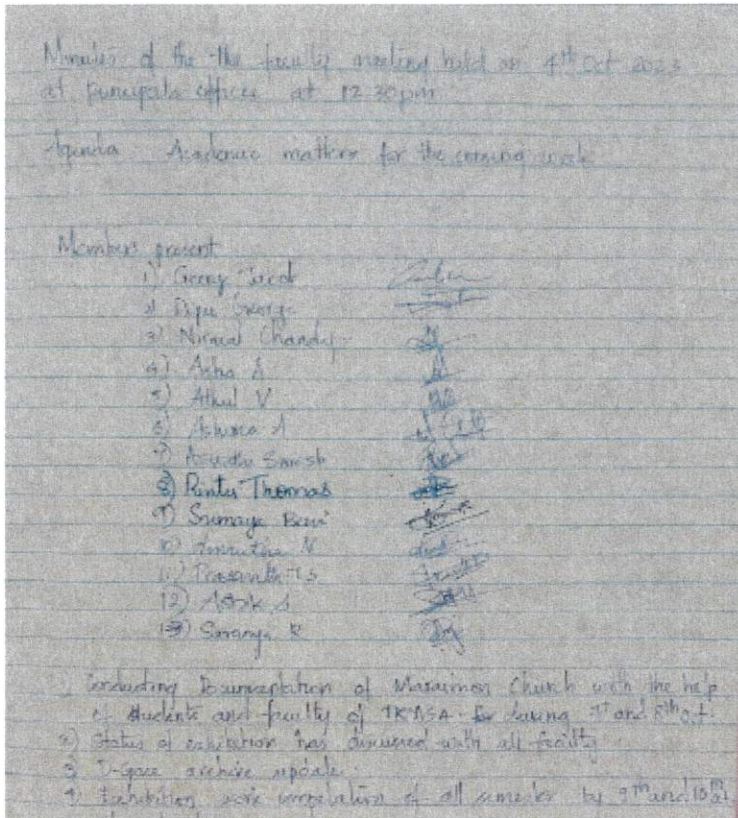 Minutes of the the faculty meeting held on 4th Oct 2023
at principals office at 12.30pm
Agenda Academic matters for the coming week
Members present
1) George Jacob
2) Dipu George
3) Nirmal Chandy
4) Asha A
5) Athul V
6)
7) Suresh
8) Rintu Thomas
9) Sumaya Beevi
10) Amrutha N
11) Prasanth T S
12) A
13) Saranya R
1) Conducting Documentation of Maramon Church with the help
of students and faculty of TKMSA for during 7th and 8th Oct.
2) Status of exhibition has discussed with all faculty
3 D-Space archive update
4 Exhibition work completion of all semester by 9th and 10th